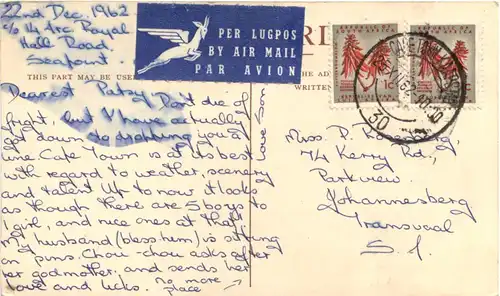 22nd Dec. 1962
c/o 14 Arc Royal
Hall Road,
Seapoint.
PER LUGPOS
BY AIR MAIL
PAR AVION
THIS PART MAY BE USED
THE AD
WRITTEN
Dearest Patsy, Don't die of
fright, but I have actually
got down to dropping you a
line Cape Town is at its best
with regard to weather, scenery
and talent. Up to now it looks
as though there are 5 boys to
1 girl, and nice ones at that
My husband (bless him) is strong
on puns. Chou-chou asks after
her godmother, and sends her
love and licks. no more
place
love
Miss. P. Rosenberg,
74 Kerry Rd.,
Parkview.
Johannesberg
Transvaal
S.A.
1c
30